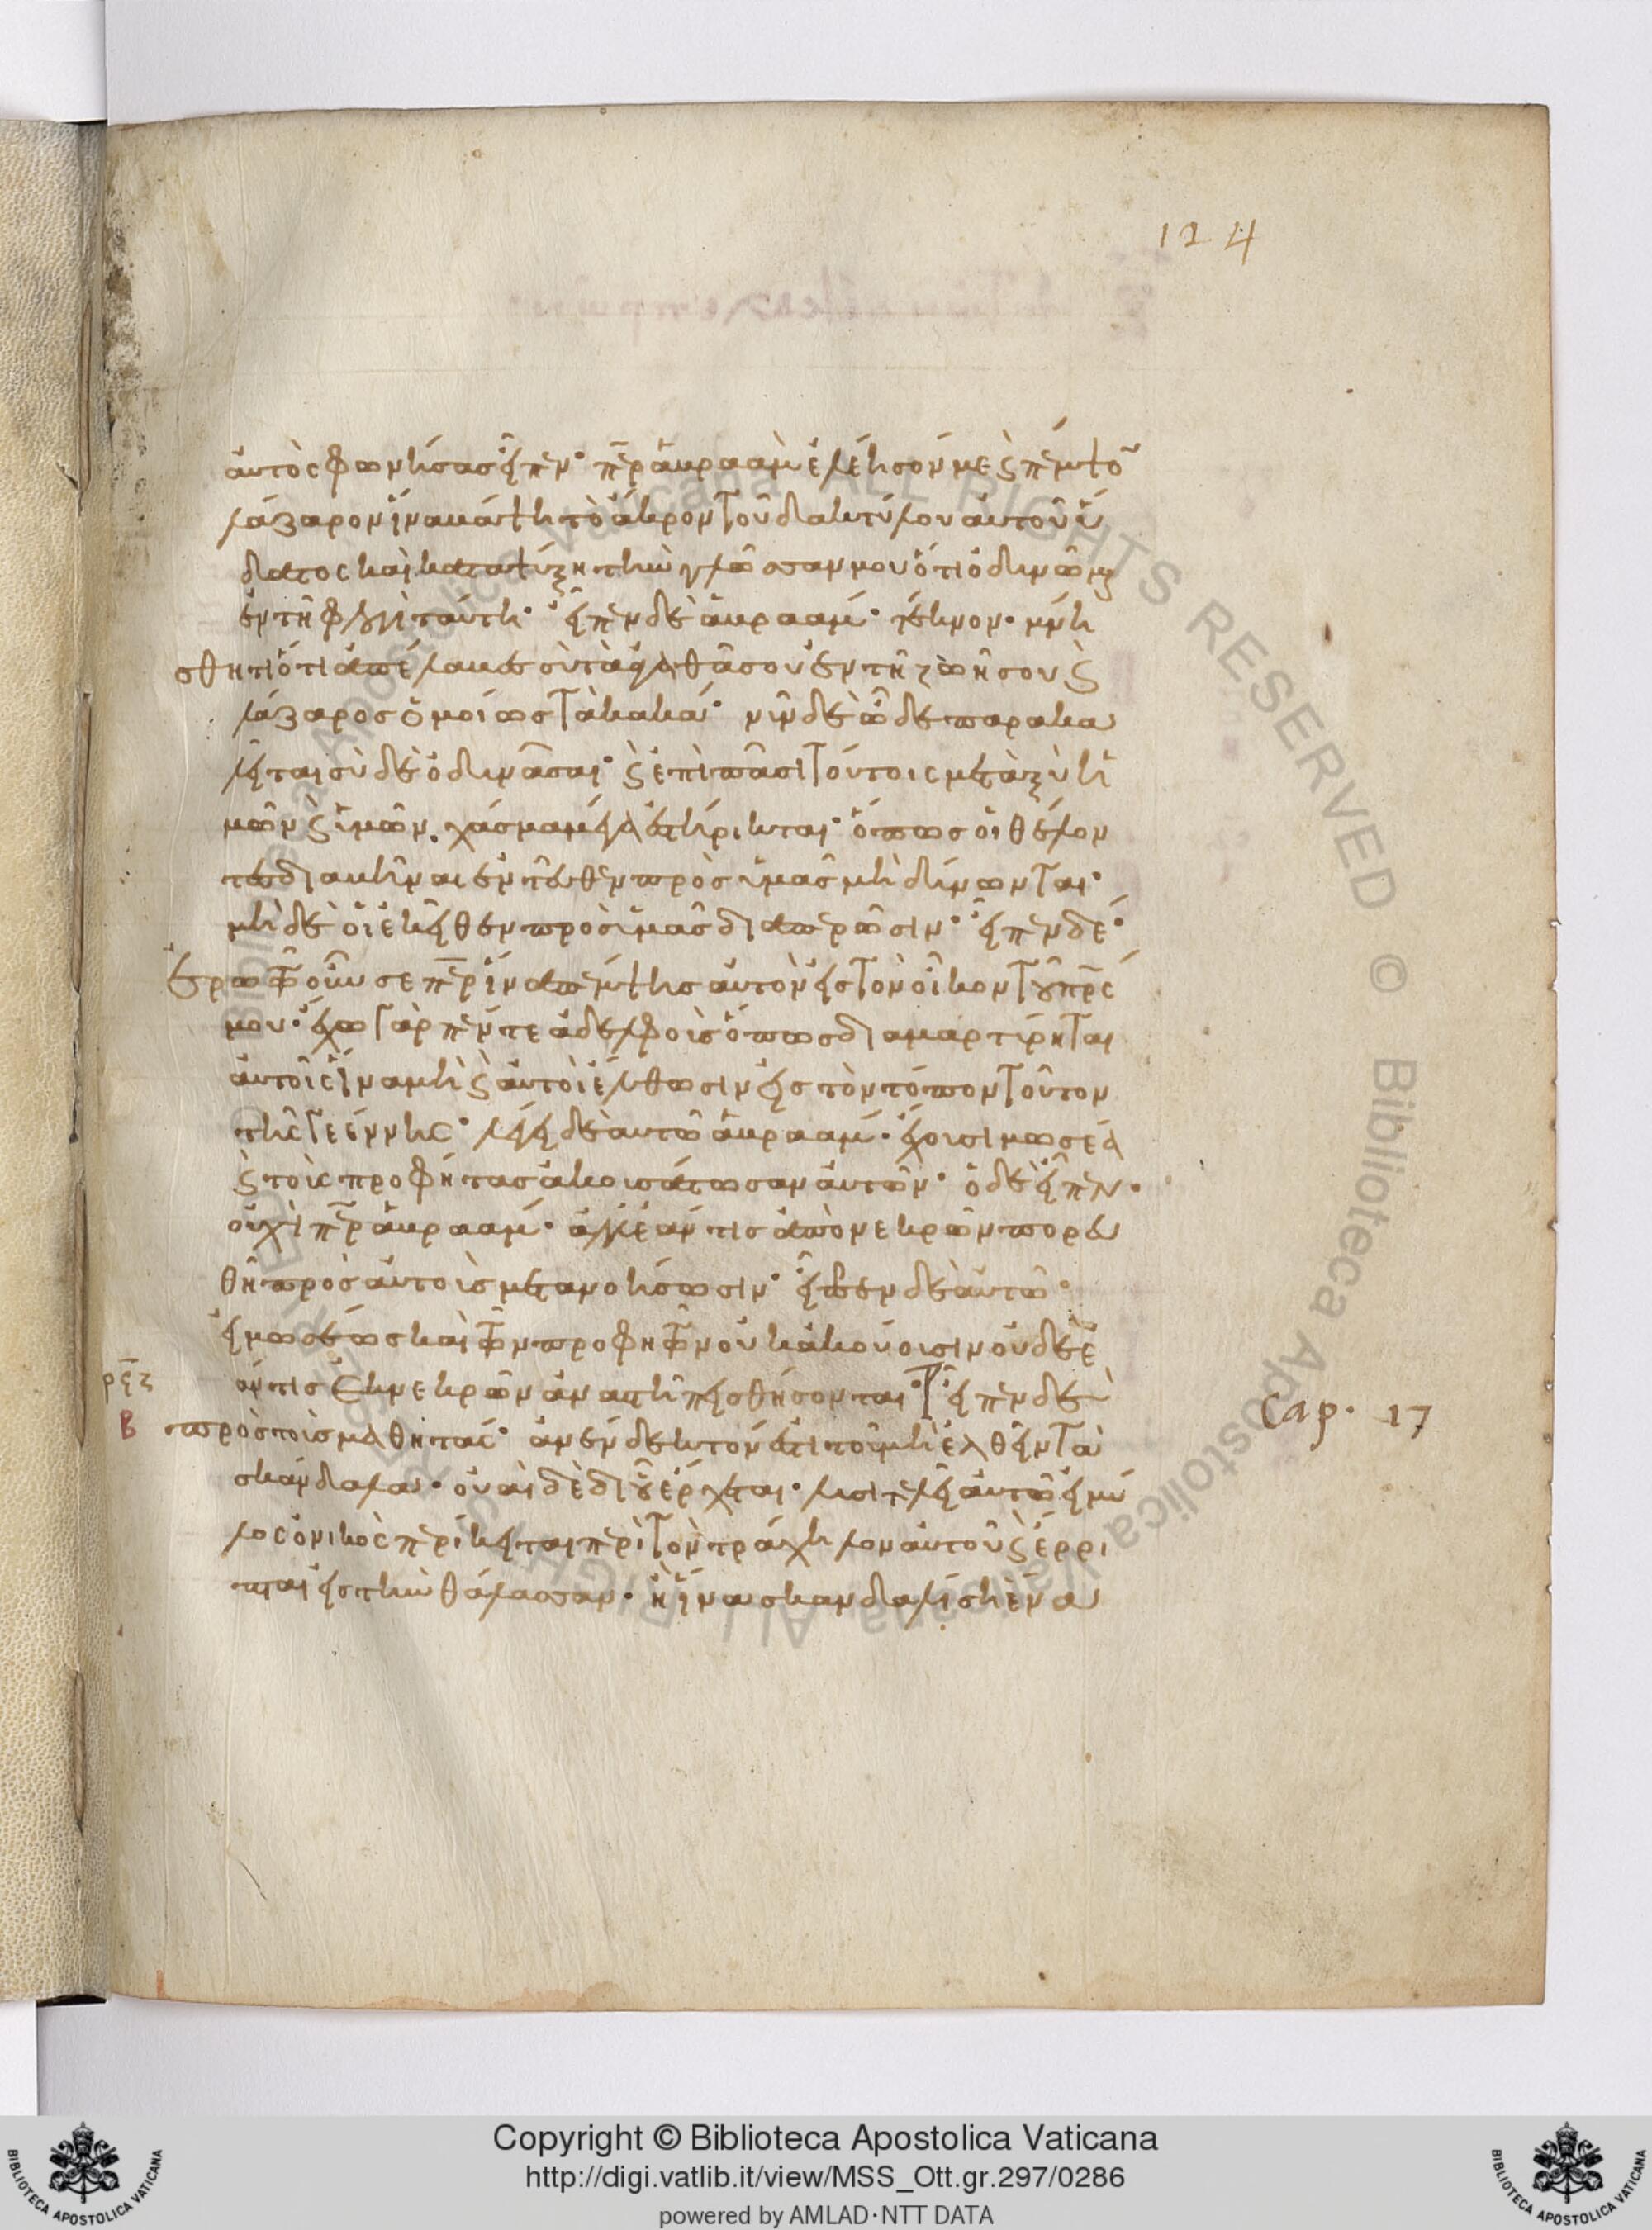 124
αὐτὸς φωνήσας εἶπεν· πε̅ρ ἀβραὰμ ἐλέησόν με ϛ πέμψο̅
λάζαρον ἵνα βάψη τὸ ἄκρον τοῦ δακτύλου αὐτοῦ ὕ
δατος καὶ καταψύξη τὴν γλῶσσαν μου ὅτι ὀδυνῶμαι
ἐν τῆ φλογὶ ταύτη· εἶπεν δὲ ἀβραάμ· τέκνον· μνή
σθητι ὅτι ἀπέλαβες σὺ τὰ ἀγαθά σου ἐν τῆ ζωῆ σου ϛ
λάζαρος ὁμοίως τὰ κακά· νῦν δὲ ὧδε παρακα
λεῖται σὺ δὲ ὀδυνᾶσαι· ϛ ἐπὶ πᾶσι τούτοις μεταξὺ ἡ
μῶν ϛ ὑμῶν. χάσμα μέγα ἐστήρικται· ὅπως οἱ θέλον
τες διαβῆναι ἐντεῦθεν πρὸς ὑμᾶς μὴ δύνωνται·
μὴ δὲ οἱ ἐκεῖθεν πρὸς ἡμᾶς διαπερῶσιν· εἶπεν δέ·
ἐρωτῶ οὖν σε πε̅ρ ἵνα πέμψης αὐτὸν εἰς τὸν οἶκον τοῦ πρ̅ς
μου· ἔχω γὰρ πέντε ἀδελφοὺς ὅπως διαμαρτύρηται
αὐτοῖς ἵνα μὴ ϛ αὐτοὶ ἔλθωσιν εἰς τὸν τόπον τοῦτον
τῆς γεέννης· λέγει δὲ αὐτῶ ἀβραάμ· ἔχουσι μωσέα
ϛ τοὺς προφήτας ἀκουσάτωσαν αὐτῶν· ὁ δὲ εἶπεν·
οὐχὶ πε̅ρ ἀβραάμ· ἀλλ' ἐάν τις ἀπὸ νεκρῶν πορευ
θῆ πρὸς αὐτοὺς μετανοήσωσιν· εἶπεν δὲ αὐτῶ·
εἰ μωσέως καὶ τῶν προφητῶν οὐκ ἀκούουσιν οὐδὲ ἐ
άν τις ἐκ νεκρῶν ἀναστῆ πεισθήσονται· εἶπεν δὲ
πρὸς τοὺς μαθητάς· ἀνένδεκτόν ἐστι τοῦ μὴ ἐλθεῖν τὰ
σκάνδαλα· οὐαὶ δὲ δι' οὗ ἔρχεται· λυσιτελεῖ αὐτῶ εἰ μύ
λος ὀνικὸς περίκειται περὶ τὸν τράχηλον αὐτοῦ ϛ ἔρρι
πται εἰς τὴν θάλασσαν· ἢ ἵνα σκανδαλίση ἕνα
Β
Cap. 17
Copyright © Biblioteca Apostolica Vaticana
http://digi.vatlib.it/view/MSS_Ott.gr.297/0286
powered by AMLAD·NTT DATA
BIBLIOTECA APOSTOLICA VATICANA
BIBLIOTECA APOSTOLICA VATICANA